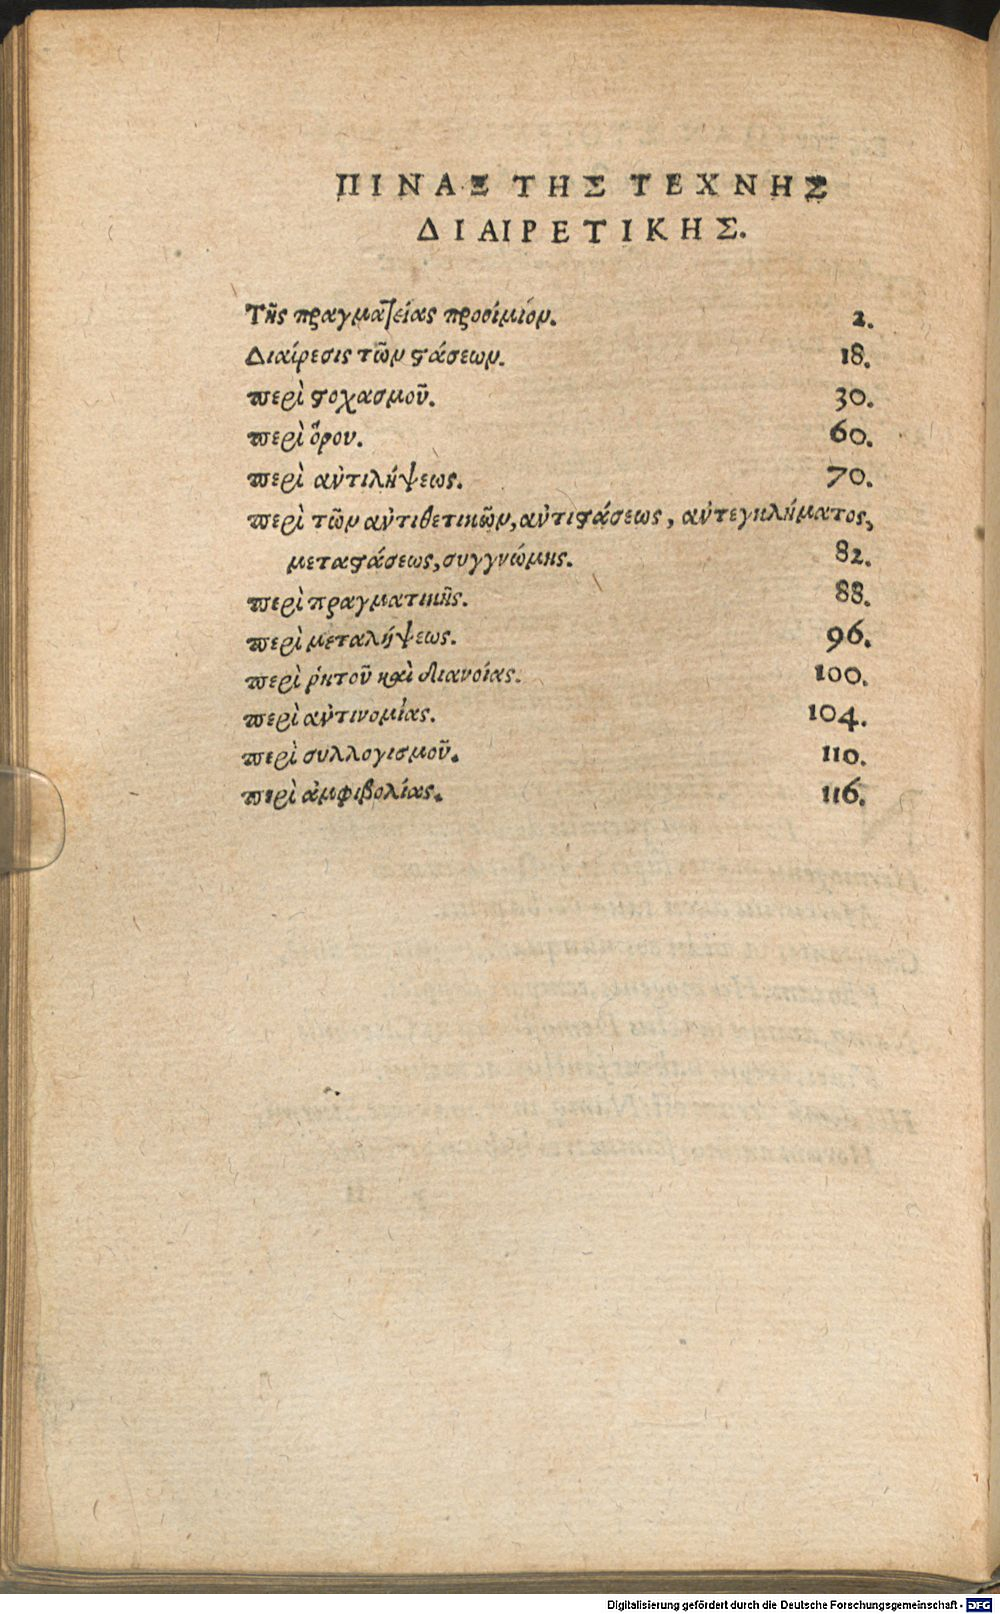 ΠΙΝΑΞ ΤΗΣ ΤΕΧΝΗΣ
ΔΙΑΙΡΕΤΙΚΗΣ.
Τῆς πραγματείας προοίμιον. 2.
Διαίρεσις τῶν στάσεων. 18.
περὶ στοχασμοῦ. 30.
περὶ ὅρου. 60.
περὶ ἀντιλήψεως. 70.
περὶ τῶν ἀντιθετικῶν, ἀντιστάσεως, ἀντεγκλήματος,
μεταστάσεως, συγγνώμης. 82.
περὶ πραγματικῆς. 88.
περὶ μεταλήψεως. 96.
περὶ ῥητοῦ καὶ διανοίας. 100.
περὶ ἀντινομίας. 104.
περὶ συλλογισμοῦ. 110.
περὶ ἀμφιβολίας. 116.
Digitalisierung gefördert durch die Deutsche Forschungsgemeinschaft - DFG